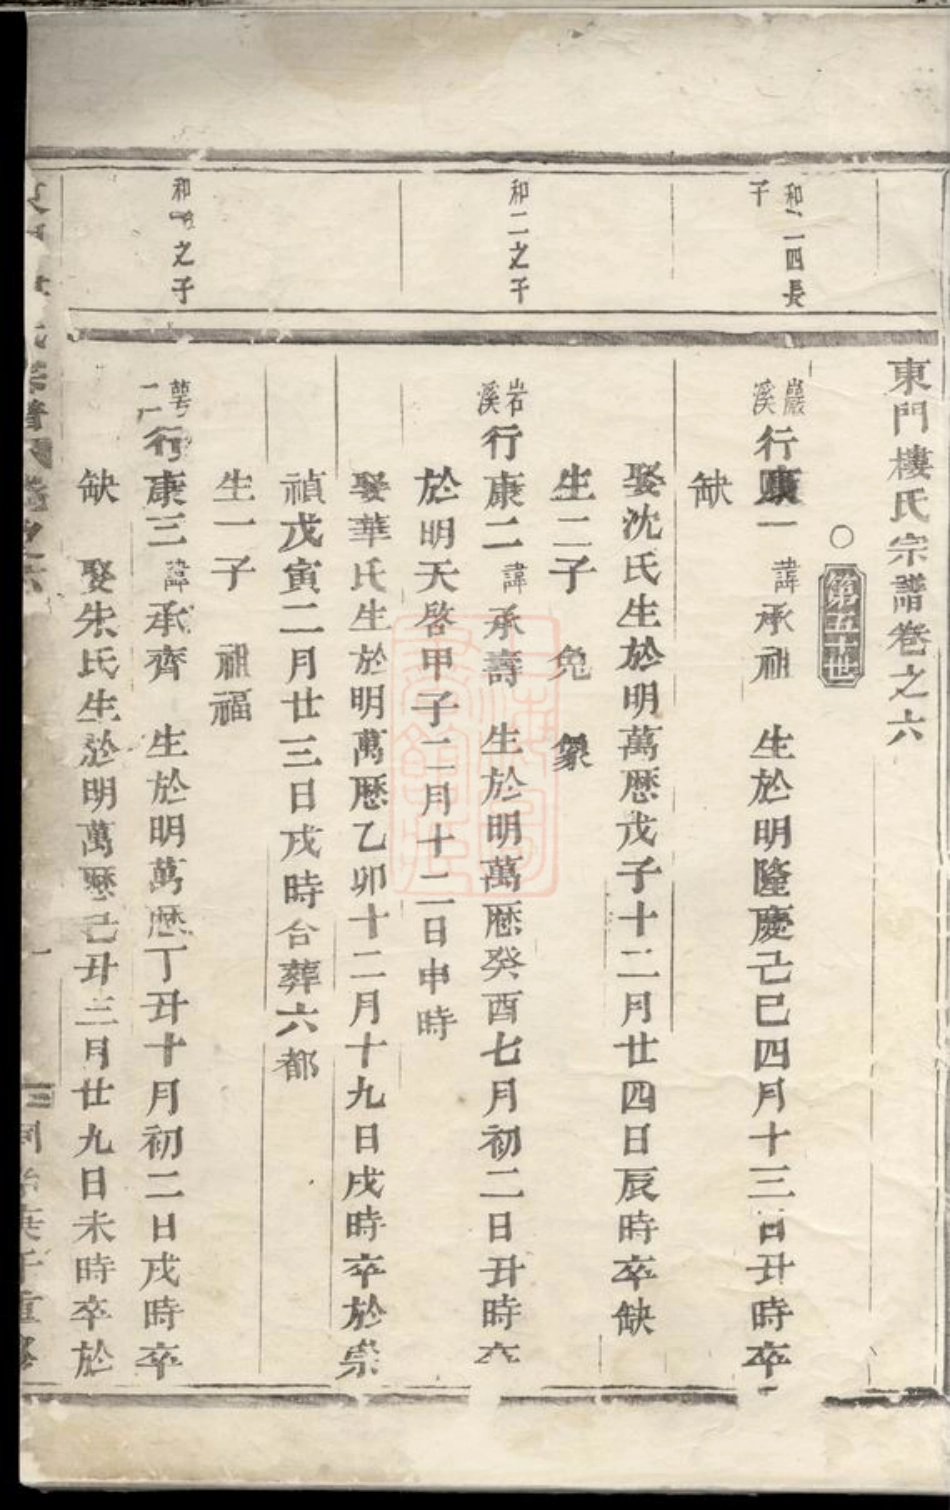 東門樓氏宗譜卷之六
○第五十世
和二四長
子
巖溪行康一 諱承祖 生於明隆慶己巳四月十三日丑時卒
缺
娶沈氏生於明萬歷戊子十二月廿四日辰時卒缺
生二子 兔 象
和二之子
岩溪行康二 諱承壽 生於明萬歷癸酉七月初二日丑時卒
於明天啓甲子二月十二日申時
娶華氏生於明萬歷乙卯十二月十九日戌時卒於崇
禎戊寅二月廿三日戌時合葬六都
生一子 祖福
之子
二行康三 諱承齊 生於明萬歷丁丑十月初二日戌時卒
缺 娶朱氏生於明萬歷己丑三月廿九日未時卒於
宗譜 卷之六